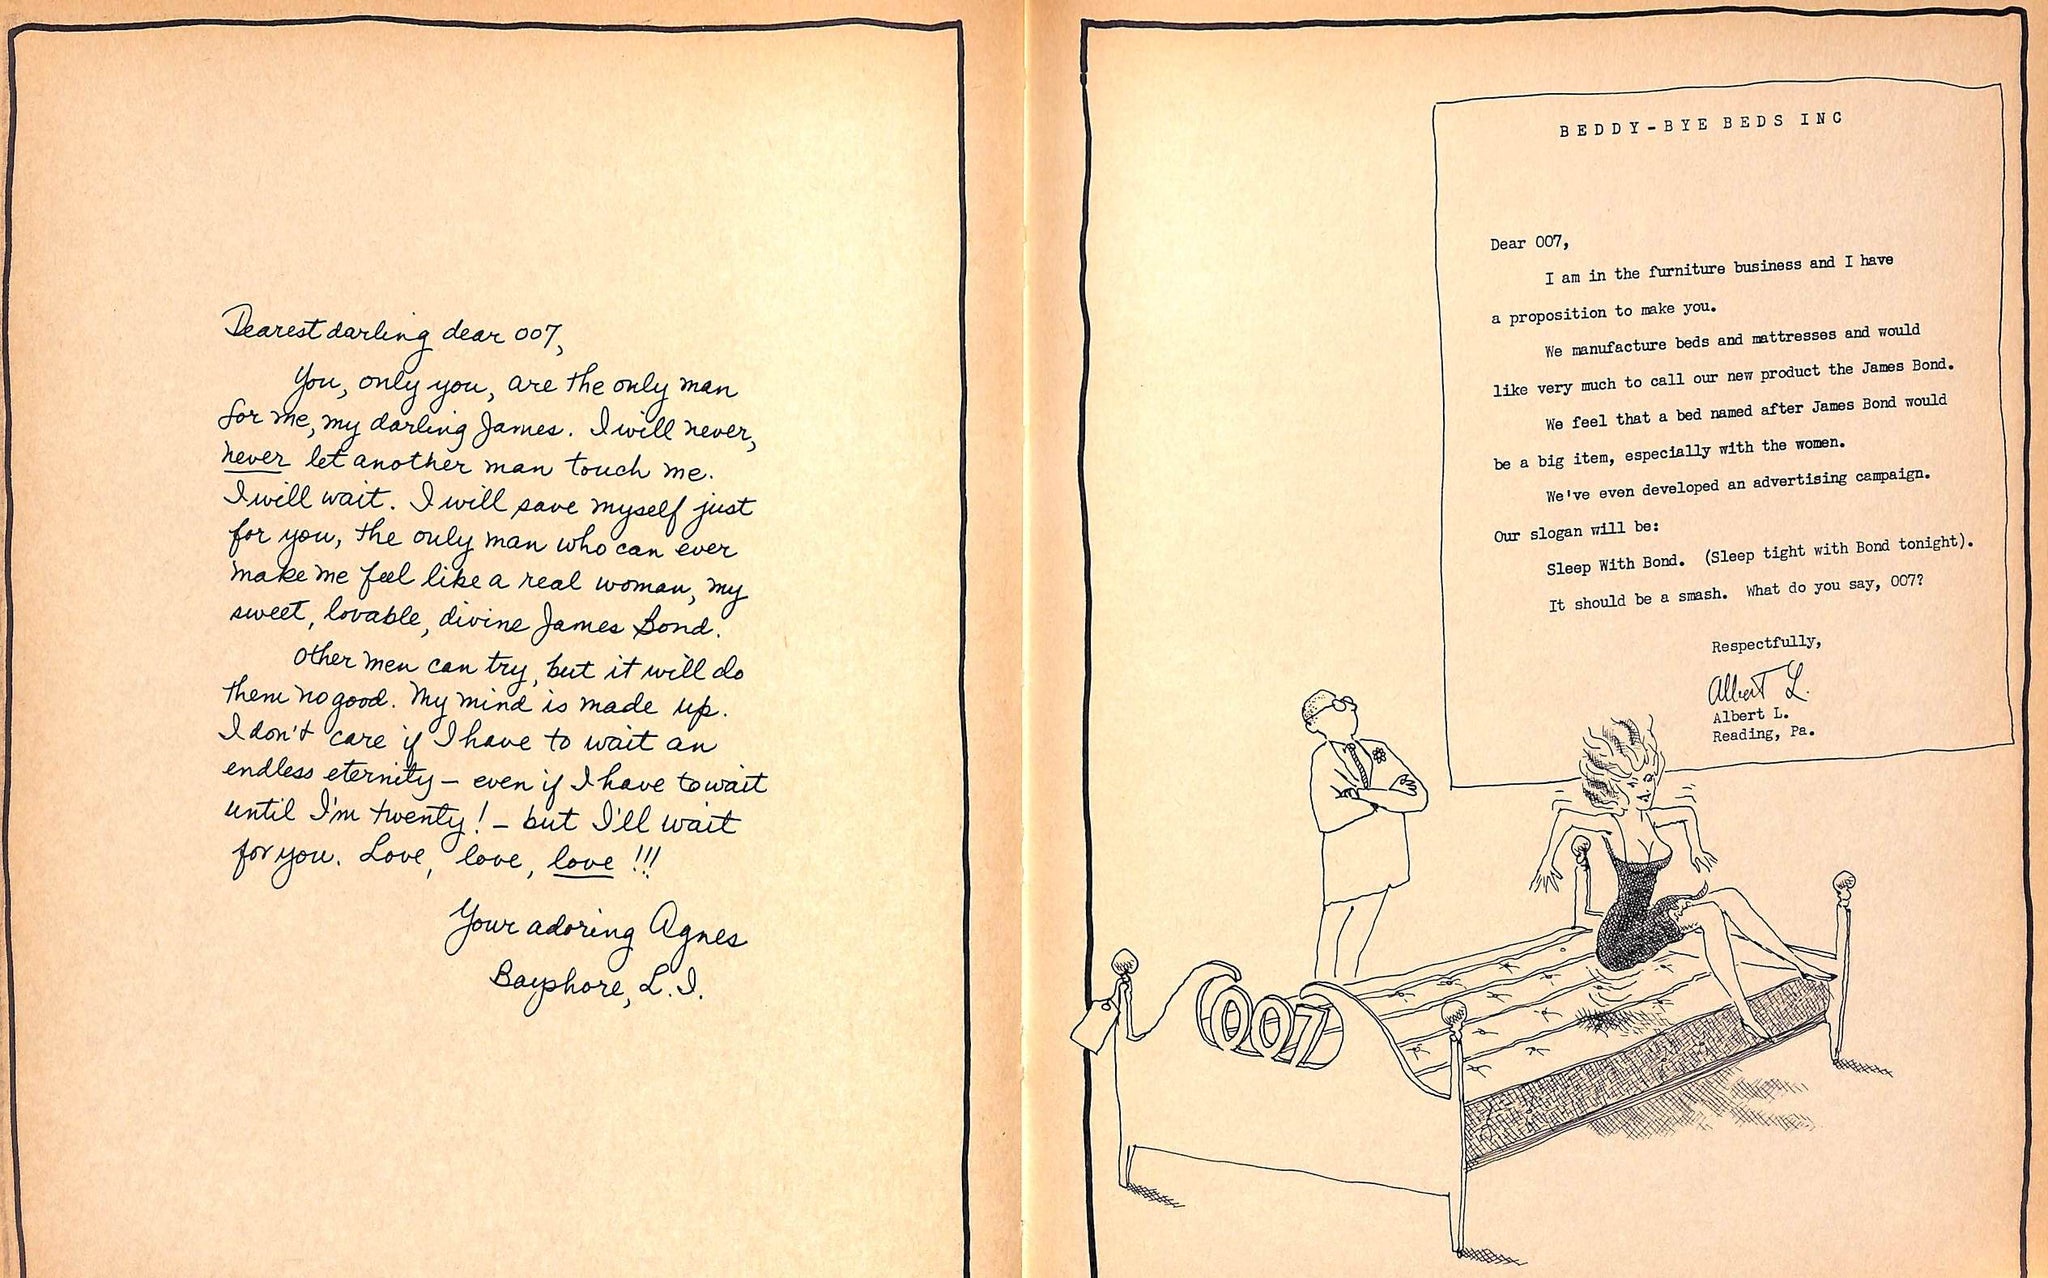 Dearest darling dear 007,
You, only you, are the only man
for me, my darling James. I will never,
never let another man touch me.
I will wait. I will save myself just
for you, the only man who can ever
make me feel like a real woman, my
sweet, lovable, divine James Bond.
Other men can try, but it will do
them no good. My mind is made up.
I don't care if I have to wait an
endless eternity – even if I have to wait
until I'm twenty! – but I'll wait
for you. Love, love, love!!!
Your adoring Agnes
Bayshore, L.I.
BEDDY-BYE BEDS INC
Dear 007,
I am in the furniture business and I have
a proposition to make you.
We manufacture beds and mattresses and would
like very much to call our new product the James Bond.
We feel that a bed named after James Bond would
be a big item, especially with the women.
We've even developed an advertising campaign.
Our slogan will be:
Sleep With Bond. (Sleep tight with Bond tonight).
It should be a smash. What do you say, 007?
Respectfully,
Albert L.
Albert L.
Reading, Pa.
007